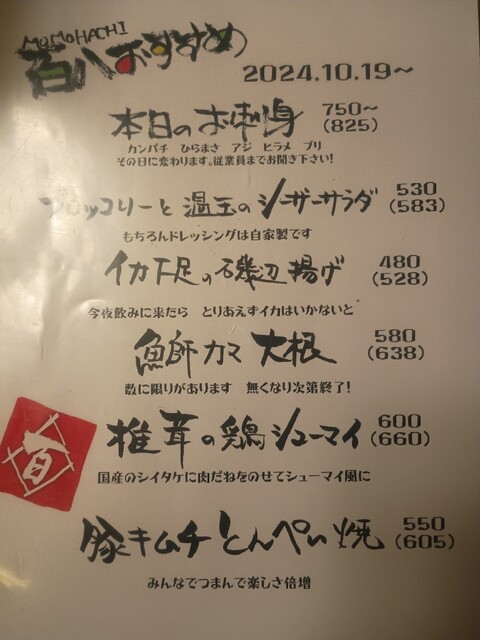 MOMOHACHI
百八おすすめ
2024.10.19～
本日のお刺身 750～
(825)
カンパチ ひらまさ アジ ヒラメ ブリ
その日に変わります。従業員までお聞き下さい!
ブロッコリーと温玉のシーザーサラダ 530
(583)
もちろんドレッシングは自家製です
イカ下足の磯辺揚げ 480
(528)
今夜飲みに来たら とりあえずイカはいかないと
魚師カマ大根 580
(638)
数に限りがあります 無くなり次第終了!
椎茸の鶏シューマイ 600
(660)
百
国産のシイタケに肉だねをのせてシューマイ風に
豚キムチとんぺい焼 550
(605)
みんなでつまんで楽しさ倍増